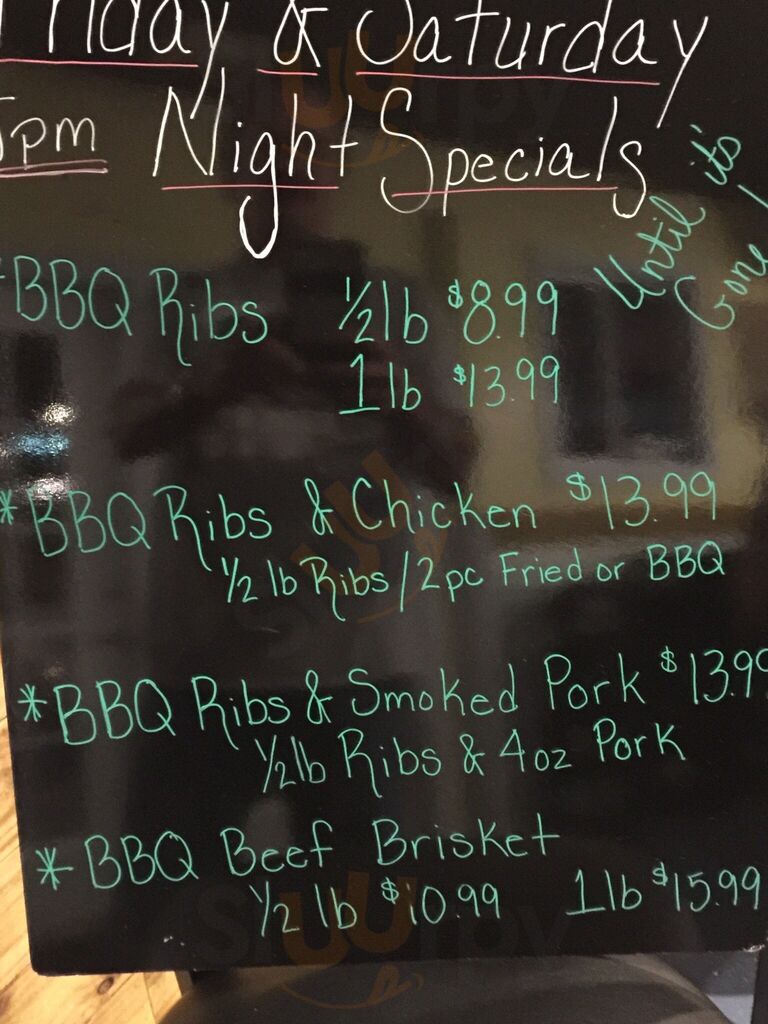 Friday & Saturday
5pm Night Specials
Until it's
Gone!
*BBQ Ribs 1/2 lb $8.99
1 lb $13.99
*BBQ Ribs & Chicken $13.99
1/2 lb Ribs/2pc Fried or BBQ
*BBQ Ribs & Smoked Pork $13.99
1/2 lb Ribs & 4oz Pork
*BBQ Beef Brisket
1/2 lb $10.99 1 lb $15.99